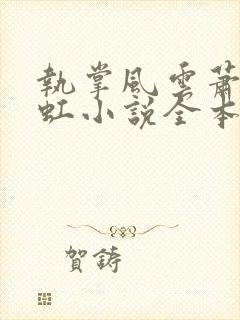 執掌風雲蕭
虹小說全本
賀鑄